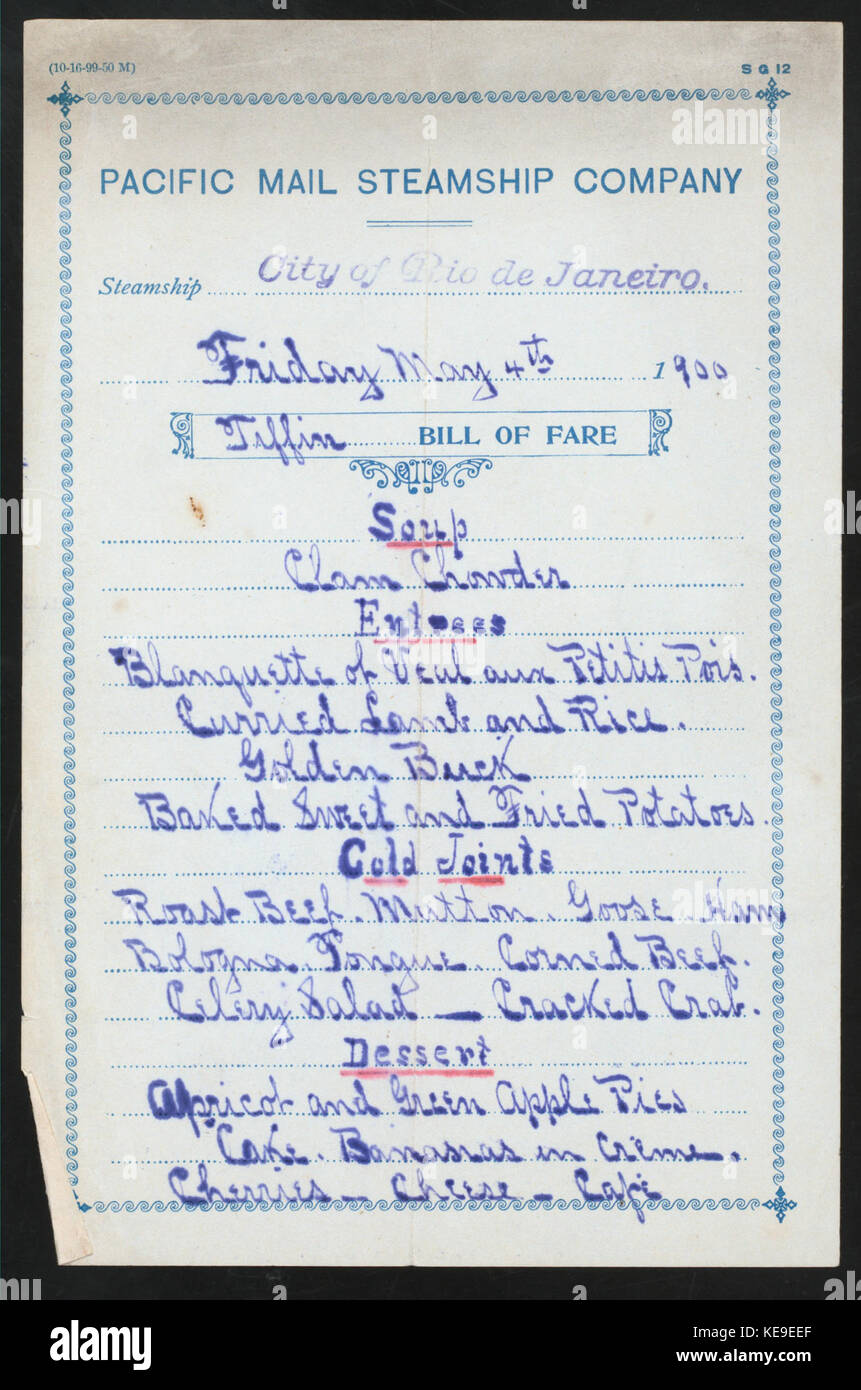 (10-16-99-50 M) S G 12
PACIFIC MAIL STEAMSHIP COMPANY
Steamship City of Rio de Janeiro.
Friday May 4th 1900
Tiffin BILL OF FARE
Soup
Clam Chowder
Entrees
Blanquette of Veal aux Petitis Pois.
Curried Lamb and Rice.
Golden Buck
Baked Sweet and Fried Potatoes.
Cold Joints
Roast Beef. Mutton. Goose. Ham
Bologna Tongue. Corned Beef.
Celery Salad — Cracked Crab.
Dessert
Apricot and Green Apple Pies
Cake. Bananas in Creme.
Cherries — Cheese — Café
alamy
Image ID: KE9EEF
www.alamy.com